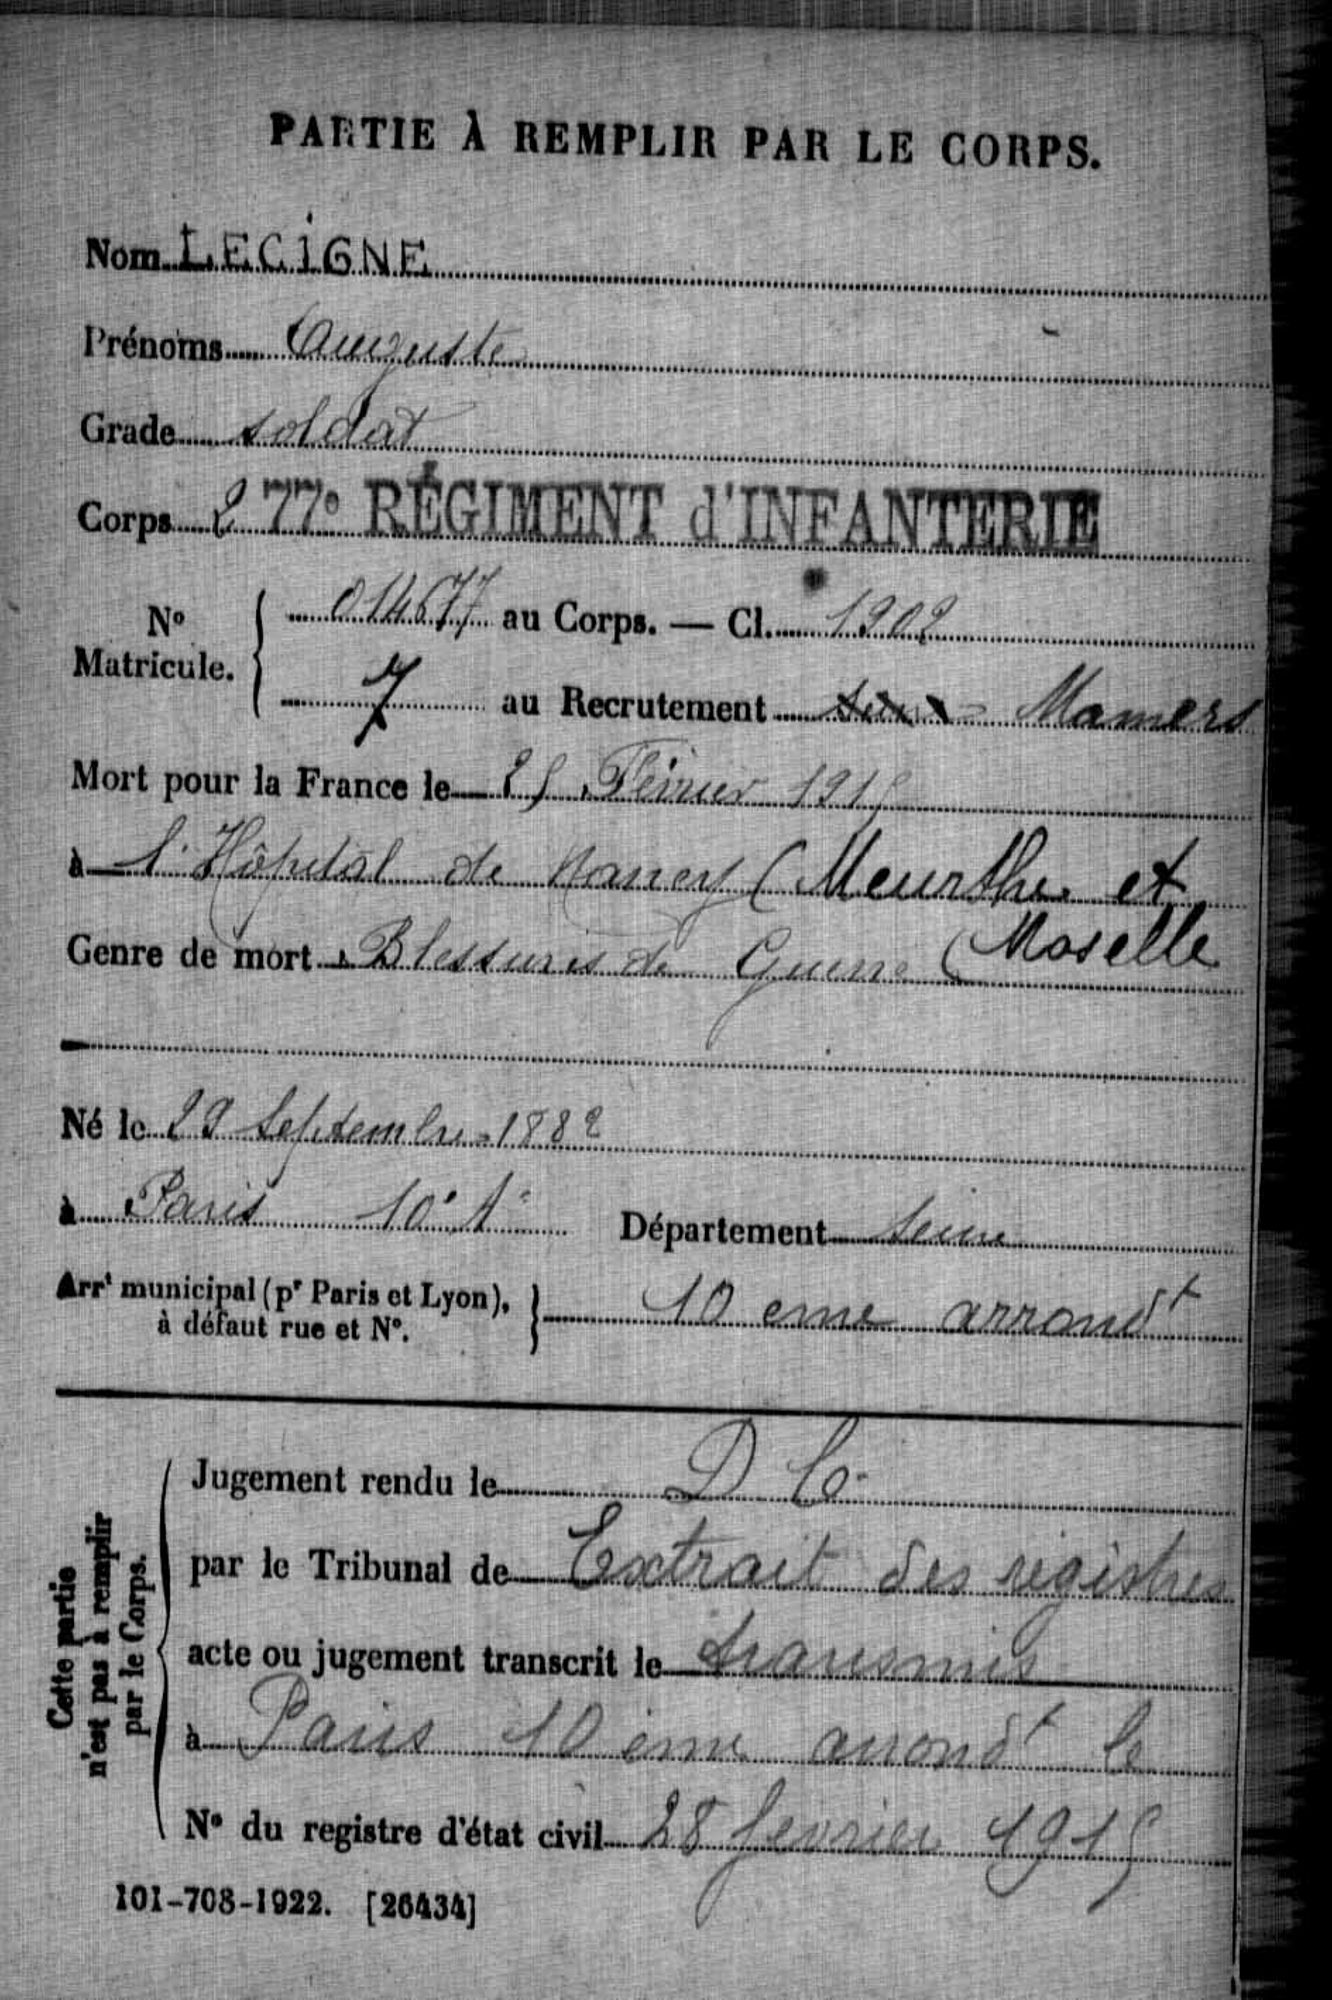 PARTIE À REMPLIR PAR LE CORPS.
Nom LECIGNE
Prénoms Auguste
Grade soldat
Corps 277e RÉGIMENT d'INFANTERIE
No Matricule. 014677 au Corps. — Cl. 1902
7 au Recrutement Seine Mamers
Mort pour la France le 25 Février 1915
à l'Hôpital de Nancy (Meurthe et
Moselle
Genre de mort Blessures de Guerre
Né le 29 Septembre 1882
à Paris 10e At Département Seine
Arrt municipal (pr Paris et Lyon),
à défaut rue et No. 10 eme arrondt
Cette partie
n'est pas à remplir
par le Corps.
Jugement rendu le D C.
par le Tribunal de Extrait des registres
acte ou jugement transcrit le transmis
à Paris 10 eme arrondt le
No du registre d'état civil 28 fevrier 1915
101-708-1922. [26434]